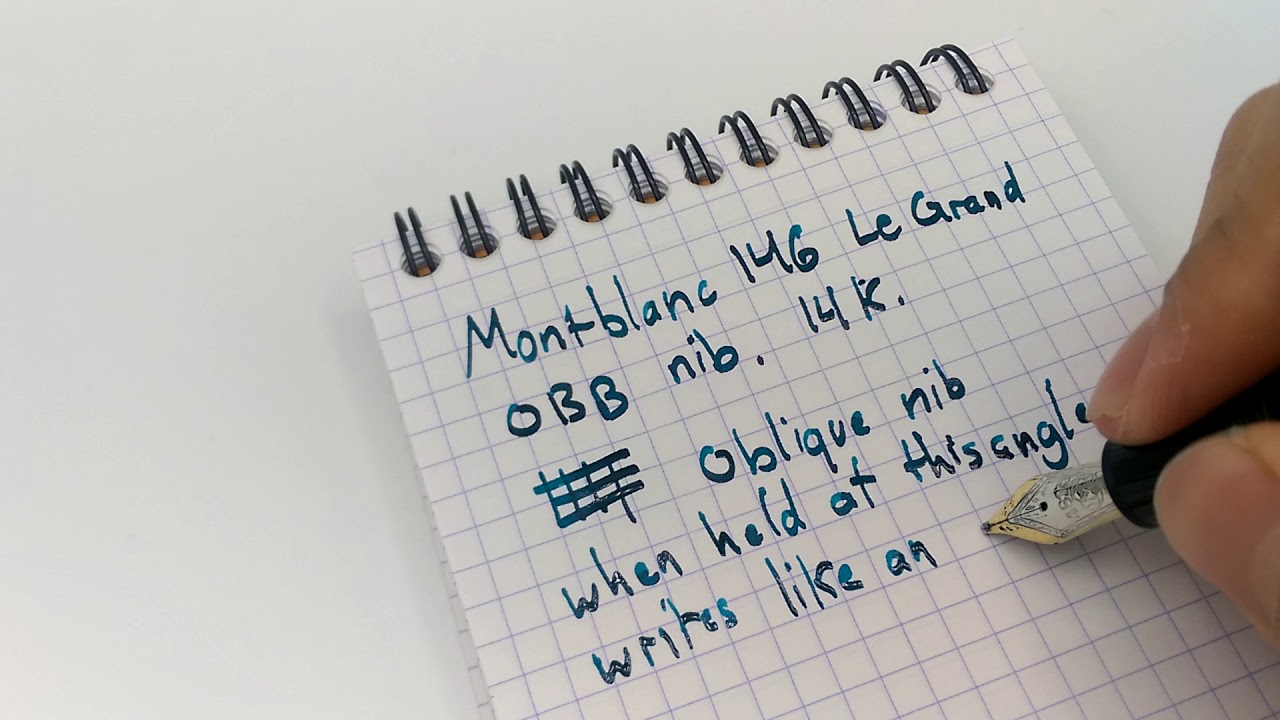 Montblanc 146 Le Grand
OBB nib. 14K.
Oblique nib
when held at this angle
writes like an